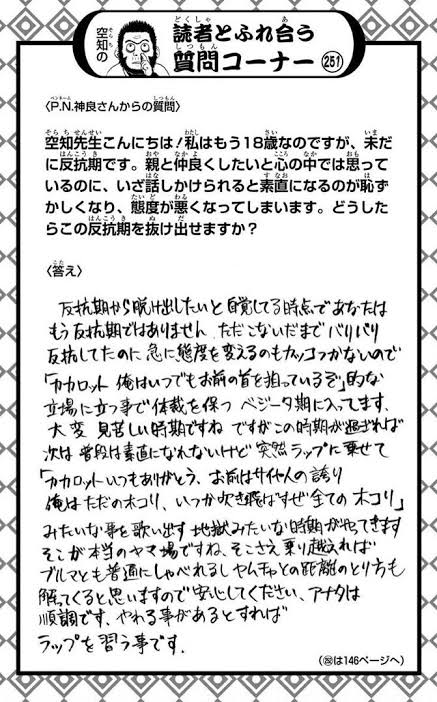 空知の
読者とふれ合う
質問コーナー 251
〈P.N.神良さんからの質問〉
空知先生こんにちは!私はもう18歳なのですが、未だ
に反抗期です。親と仲良くしたいと心の中では思って
いるのに、いざ話しかけられると素直になるのが恥ず
かしくなり、態度が悪くなってしまいます。どうした
らこの反抗期を抜け出せますか?
〈答え〉
反抗期から脱け出したいと自覚してる時点であなたは
もう反抗期ではありません ただこないだまでバリバリ
反抗してたのに 急に態度を変えるのもカッコつかないので
「カカロット 俺はいつでもお前の首を狙っているぞ」的な
立場に立つ事で体裁を保つ ベジータ期に入ってます、
大変 見苦しい時期ですね ですがこの時期が過ぎれば
次は 普段は素直になれないけど 突然ラップに乗せて
「カカロットいつもありがとう、お前はサイヤ人の誇り
俺はただのホコリ、いつか吹き飛ばすぜ全ての ホコリ」
みたいな事を歌い出す 地獄みたいな時期がやってきます
そこが本当のヤマ場ですね、そこさえ乗り越えれば
ブルマとも普通にしゃべれるし ヤムチャとの距離のとり方も
解ってくると思いますので安心してください、アナタは
順調です、やれる事があるとすれば
ラップを習う事です.
(252は146ページへ)